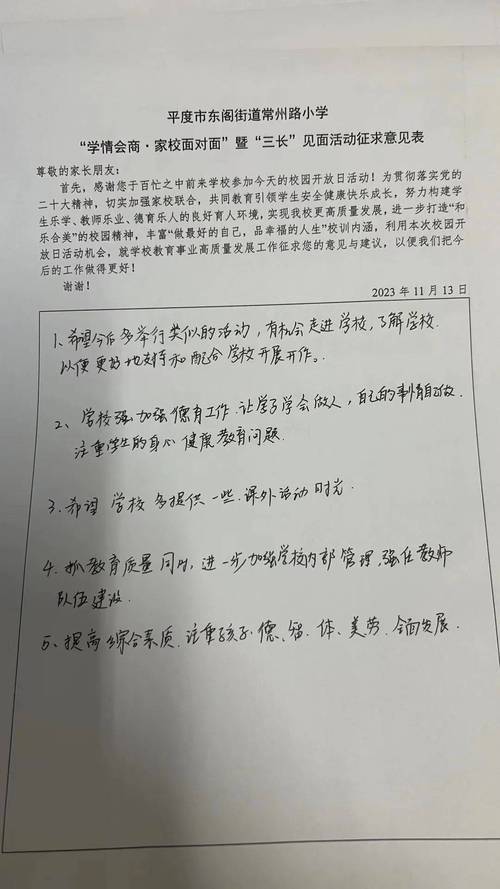 平度市东阁街道常州路小学
“学情会商·家校面对面”暨“三长”见面活动征求意见表
尊敬的家长朋友:
首先,感谢您于百忙之中前来学校参加今天的校园开放日活动!为贯彻落实党的
二十大精神,切实加强家校联合,共同教育引领学生安全健康快乐成长,努力构建学
生乐学、教师乐业、德育乐人的良好育人环境,实现我校更高质量发展,进一步打造“和
乐合美”的校园精神,丰富“做最好的自己,品幸福的人生”校训内涵,利用本次校园开
放日活动机会,就学校教育事业高质量发展工作征求您的意见与建议,以便我们把今
后的工作做得更好!
谢谢!
2023年11月13日
1、希望今后多举行类似的活动,有机会走进学校,了解学校.
以便更好地支持和配合学校开展开作。.
2、学校强加强德育工作.让学子学会做人,自己的事情自己做.
注重学生的身心健康教育问题.
3.希望学校多提供一些.课外活动时光.
4.抓教育质量同时,进一步加强学校内部管理,强任教师
队伍建设.
5、提高综合素质.注重孩子.德、智、体、美劳.全面发展.